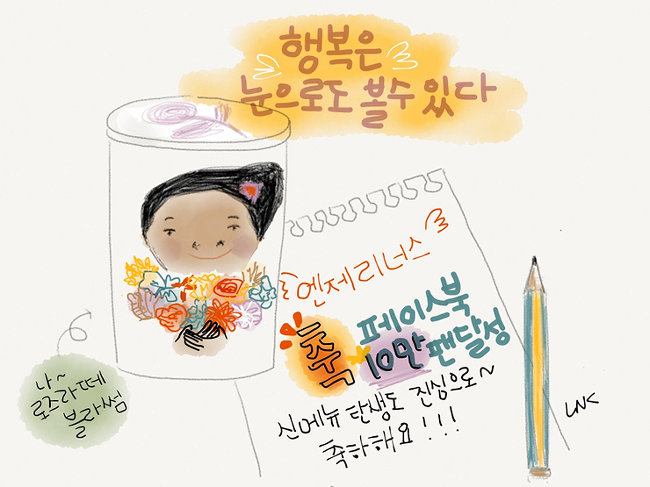 행복은
눈으로도 볼수 있다
엔제리너스
축 페이스북
10만 팬달성
신메뉴 탄생도 진심으로~
축하해요!!!
나~
로즈라떼
블라썸